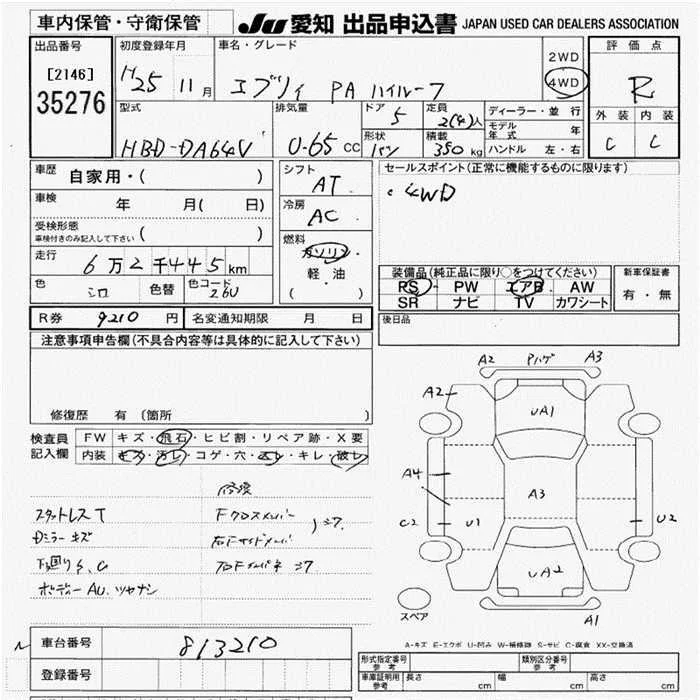 車内保管・守衛保管 JU 愛知 出品申込書 JAPAN USED CAR DEALERS ASSOCIATION
出品番号 [2146] 35276
初度登録年月 H25 11月
車名・グレード エブリィ PA ハイルーフ
2WD
4WD
評価点 R
外装 内装
C C
型式 HBD-DA64V
排気量 0.65 CC
ドア 5
定員 2(4)人
形状 バン
積載 350 kg
ディーラー・並行
モデル年式 年
ハンドル 左・右
車歴 自家用・( )
車検 年 月( 日)
受検形態 車検付きのみ記入して下さい ( )
走行 6万2千445km
色 シロ 色替 色コード 26U
シフト AT
冷房 AC
燃料 ガソリン・軽油 ( )
セールスポイント(正常に機能するものに限ります)
4WD
装備品(純正品に限り○をつけてください)
PS・PW エアB AW
SR ナビ TV カワシート
新車保証書
有・無
R券 9210 円 名変通知期限 月 日
後日品
注意事項申告欄(不具合内容等は具体的に記入して下さい)
修復歴 有 (箇所 )
検査員記入欄
FW キズ・飛石・ヒビ割・リペア跡・X要
内装 キズ・汚レ・コゲ・穴・キレ・破レ
スタットレスT
Dミラー キズ
下廻り S.C
ボディー AU. ツヤナシ
Fクロスメンバー
A2 Pハゲ A3
A2 UA1
A4 A3
C2 U1 U2
UA2
スペア A1
A-キズ E-エクボ U-凹み W-補修跡 S-サビ C-腐食 XX-交換済
車台番号 813210
登録番号
形式指定番号 参考 類別区分番号 参考
車庫証明用 参考 長さ cm 幅 cm 高さ cm